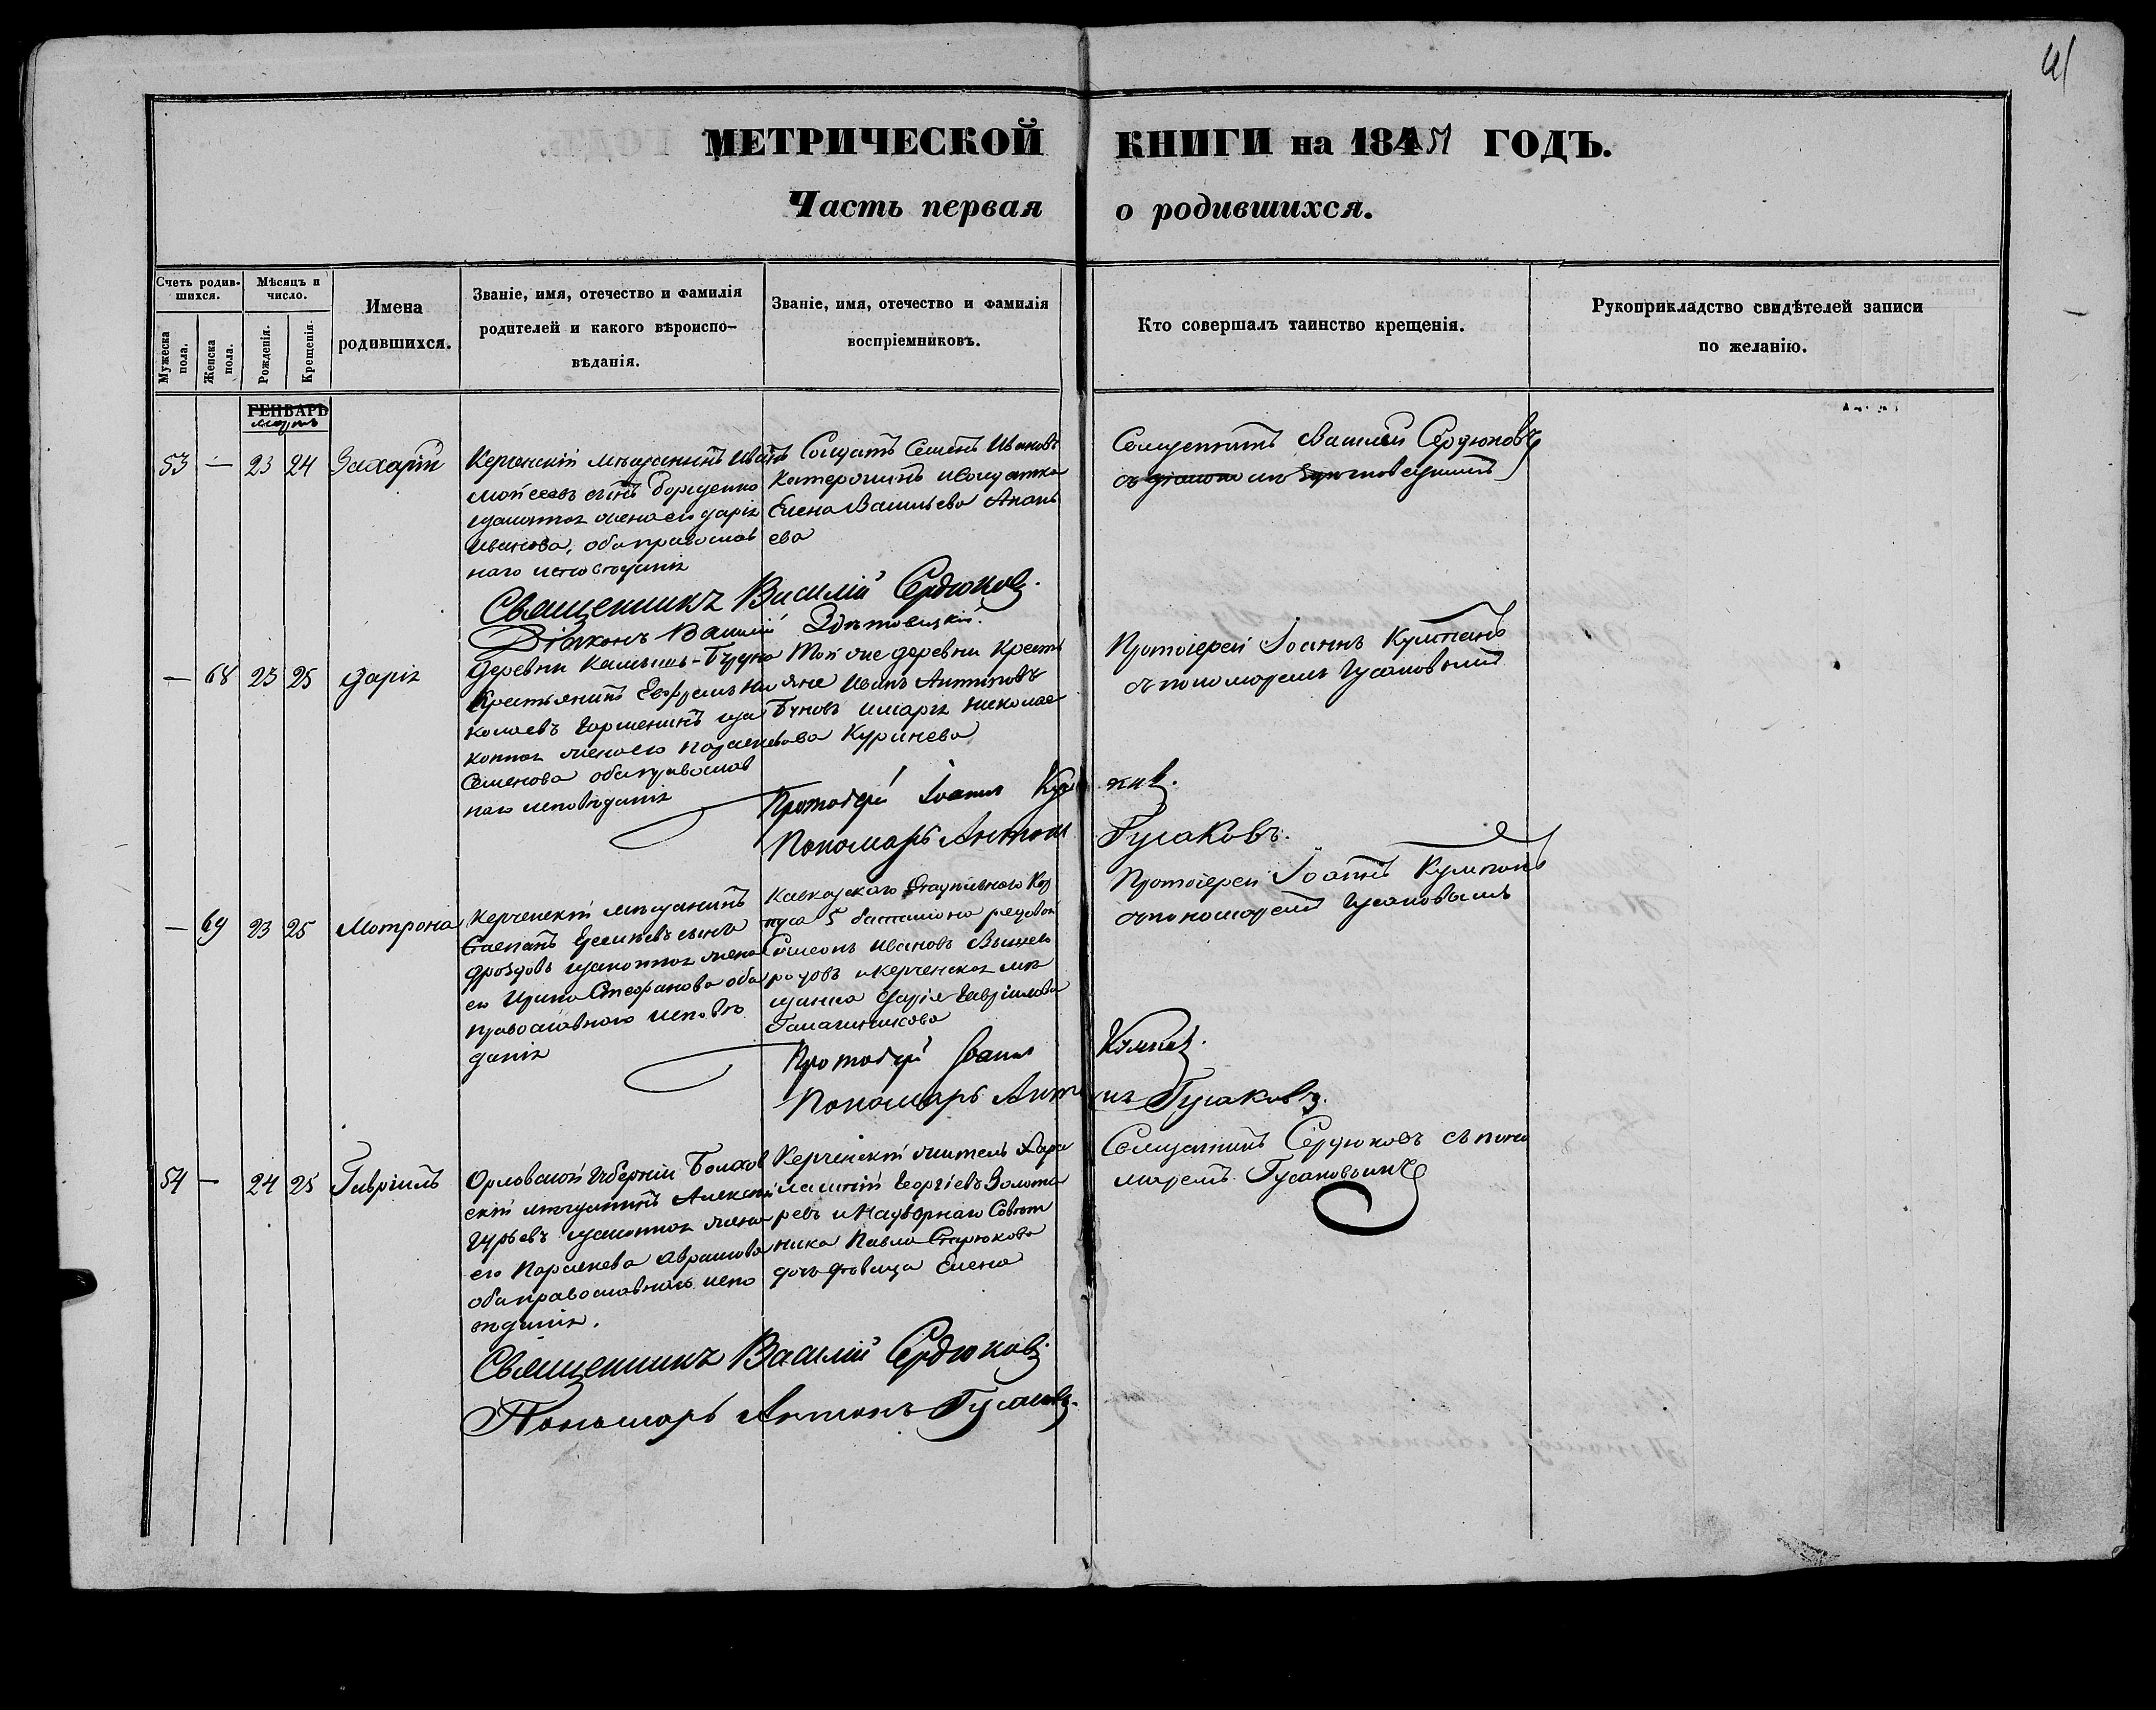 41
МЕТРИЧЕСКОЙ КНИГИ на 18451 ГОДЪ.
Часть первая о родившихся.
Счетъ родив-
шихся.
Мужеска
пола.
Женска
пола.
Мѣсяцъ и
число.
Рожденія.
Крещенія.
Имена
родившихся.
Званіе, имя, отечество и фамилія
родителей и какого вѣроиспо-
вѣданія.
Званіе, имя, отечество и фамилія
воспріемниковъ.
Кто совершалъ таинство крещенія.
Рукоприкладство свидѣтелей записи
по желанію.
ГЕНВАРЬ
мартъ
53 — 23 24 Захарій
Керченскій мѣщанинъ Иванъ
Мойсеевъ сынъ Борщенко
и законная жена его Дарія
Иванова, оба православ
наго исповѣданія
Солдатъ Семенъ Ивановъ
и солдатка
Елена Васильева Анань
ева
Священникъ Василій Сердюковъ
съ діакономъ
Священникъ Василій Сердюковъ.
Діаконъ Василій
— 68 23 25 Дарія
Деревни Камышъ-Буруна
Крестьянинъ Ефремъ Ни
колаевъ Горшенинъ и за
конная жена его Параскева
Семенова оба православ
наго исповѣданія
Той же деревни Кресть
яне Иванъ Антиповъ
и Марія Николае
ва Куринева
Протоіерей Іоаннъ Кумпанъ
съ пономаремъ Гусаковымъ
Протоіерей Іоаннъ
Пономарь Антонъ Гусаковъ.
— 69 23 25 Мотрона
Керченскій мѣщанинъ
Степанъ сынъ
Дроздовъ и законная жена
его Ирина Стефанова оба
православнаго исповѣ
данія
Кавказскаго Отдѣльнаго Кор
пуса 5 баталіона рядовой
Симеонъ Ивановъ Вышего
родовъ и Керченская мѣ
щанка Дарія Гавріилова
Протоіерей Іоаннъ Кумпанъ
съ пономаремъ Гусаковымъ
Протоіерей Іоаннъ Кумпанъ.
Пономарь Антонъ Гусаковъ.
54 — 24 25 Гавріилъ
Орловской Губерніи Болхов
скій мѣщанинъ Алексѣй
Гурьевъ и законная жена
его Параскева Абрамова
оба православнаго испо
вѣданія.
Керченскій житель Хара
лампій Георгіевъ Золота
ревъ и Надворнаго Совѣт
ника Павла Сердюкова
дочь дѣвица Елена
Священникъ Сердюковъ съ поно
маремъ Гусаковымъ
Священникъ Василій Сердюковъ.
Пономарь Антонъ Гусаковъ.